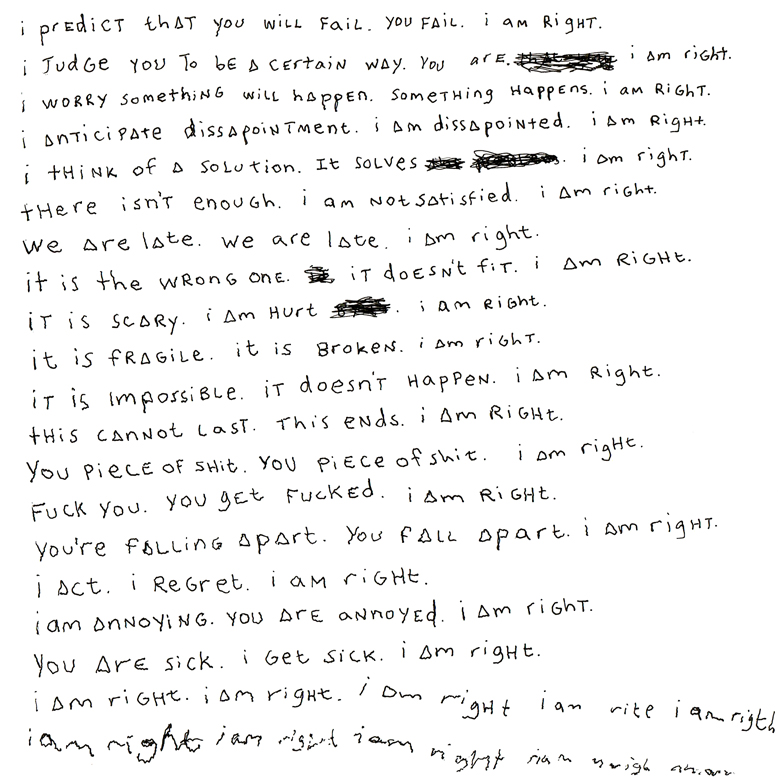 i prEdiCT thAT you will Fail. you FAil. i am Right.
i JUdGE YOU To bE A CErtAiN WAy. YOU ArE. i Am right.
i WORRY SomETHiNG Will hAppEN. SomETHING HAppens. i am RiGhT.
i ANTiCiPAtE dissApoiNTmENt. i Am dissApointed. i Am Right.
i tHiNK of A SoLUtion. It SolvES . i Am righT.
tHere isn'T enough. i am NOT SAtisfied. i Am right.
we Are lAte. we are lAte. i Am right.
it is the WRONG ONE. iT doESN't fiT. i Am RiGHt.
iT iS SCARy. i Am HUrt . i am Right.
it is fRAGiLE. it is BRoKEN. i Am righT.
iT is ImpossiBLE. iT doesn'T HAppEN. i Am Right.
tHis CANNot LAST. This ENds. i Am RiGHt.
YOU PiECE OF SHit. YOU PiECE of shit. i Am rigHt.
FUCK YOU. YOU gEt FUCKEd. i Am RiGHt.
you're fALLiNG ApArt. YOU fALL ApArt. i Am righT.
i ACT. i REGrEt. i AM riGHt.
iam ANNOYiNG. YOU ArE ANNOYEd. i Am rigHT.
YOU ArE sick. i GEt SiCK. i Am rigHt.
i Am riGHt. i Am rigHt. i Am rigHt i am rite i am rigth
i am right i am right i am right iam